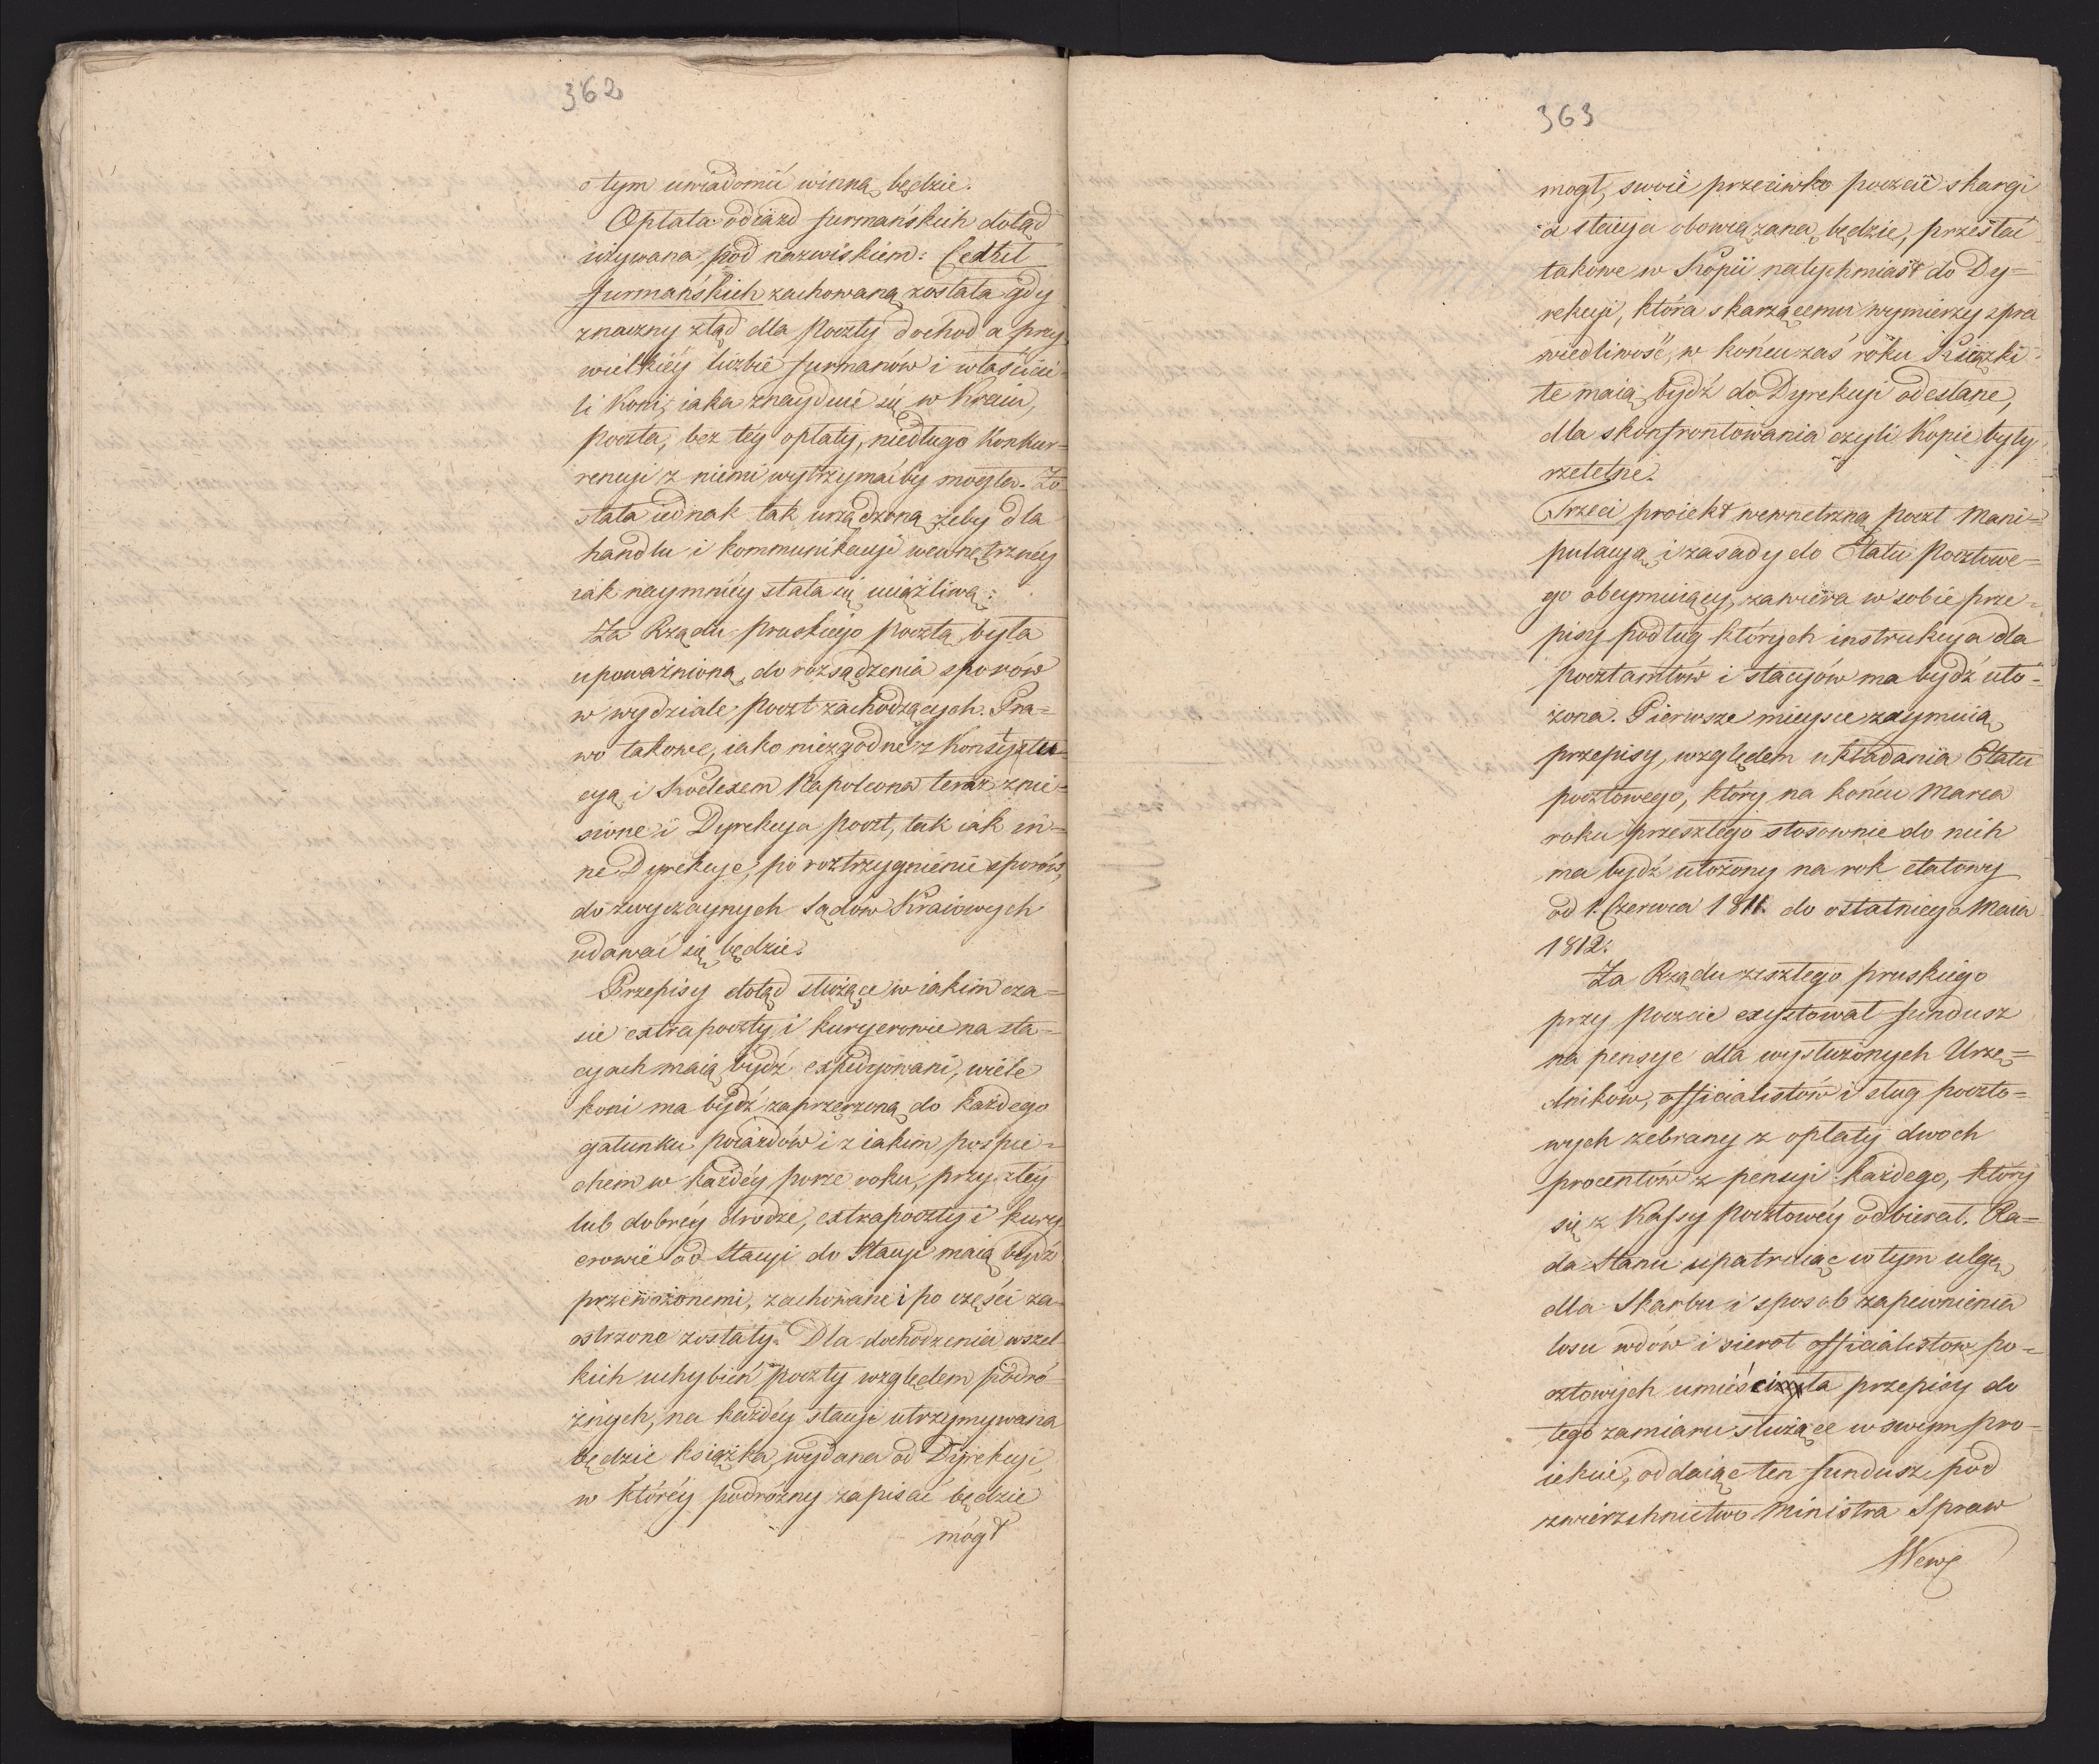 362
o tym uwiadomić winną będzie.
Opłata od iazd furmańskich dotąd
używana pod nazwiskiem: Cedził
furmańskich zachowaną została gdy
znaczny ztąd dla Poczty dochod a przy
wielkiéy liczbie furmanów i właścicie=
li Koni, iaka znayduie się w Kraiu,
poczta, bez téy opłaty, niedługo Konkur=
rencyi z niemi wytrzymaćby mogła. Zo
stała iednak tak urządzoną żeby dla
handlu i kommunikacyi wewnętrznéy
iak naymniéy stała się uciążliwą.
Za Rządu pruskiego poczta była
upoważnioną do rozsądzenia sporów
w wydziale poczt zachodzących. Pra=
wo takowe, iako niezgodne z Konstytu=
cyą i Kodexem Napoleona teraz znie=
sione i Dyrekcya poczt, tak iak in=
ne Dyrekcye, po roztrzygnienie sporów,
do zwyczaynych Sądow Kraiowych
udawać się będzie.
Przepisy dotąd służące w iakim cza=
sie extrapoczty i kuryerowie na sta=
cyach maią bydź expedyowani, wiele
koni ma bydź zaprzężoną do każdego
gatunku poiazdów i z iakim pospie=
chem w każdéy porze roku, przy złéy
lub dobréy drodze, extrapoczty i kury
erowie od Stacyi do Stacyi maią bydź
przewożonemi, zachowane i po części za=
ostrzone zostały. Dla dochodzenia wszel=
kich uchybień poczty względem podró
żnych, na każdéy stacyi utrzymywana
będzie książka, wydana od Dyrekcyi,
w któréy podróżny zapisać będzie
mógł
363
mogł, swoie przeciwko poczcie skargi
a stacya obowiązaną będzie, przesłać
takowe w Kopii natychmiast do Dy=
rekcyi, która skarżącemu wymierzy spra
wiedliwość, w końcu zaś roku Książki
te maią bydź do Dyrekcyi odesłane,
dla skonfrontowania czyli Kopie były
rzetelne.
Trzeci proiekt wewnętrzną poczt Mani=
pulacyą i zasady do Etatu Pocztowe=
go obeymuiący, zawiera w sobie prze=
pisy podług których instrukcya dla
pocztamtów i stacyów ma bydź uło=
żona. Pierwsze mieysce zaymuią
przepisy, względem układania Etatu
pocztowego, który na końcu Marca
roku przeszłego stosownie do nich
ma bydź ułożony na rok etatowy
od 1. Czerwca 1811. do ostatniego Maia
1812.
Za Rządu zeszłego pruskiego
przy Poczcie exystował fundusz
na pensye dla wysłużonych Urzę=
dników, officialistów i sług poczto=
wych zebrany z opłaty dwoch
procentów z pensyi każdego, który
się z Kassy Pocztowéy odbierał. Ra=
da Stanu upatruiąc w tym ulgę
dla Skarbu i sposob zapewnienia
losu wdów i sierot officialistow po=
cztowych umieściła przepisy do
tego zamiaru służące w swym pro=
iekcie, oddaiąc ten fundusz pod
zwierzchnictwo Ministra Spraw
Wewę